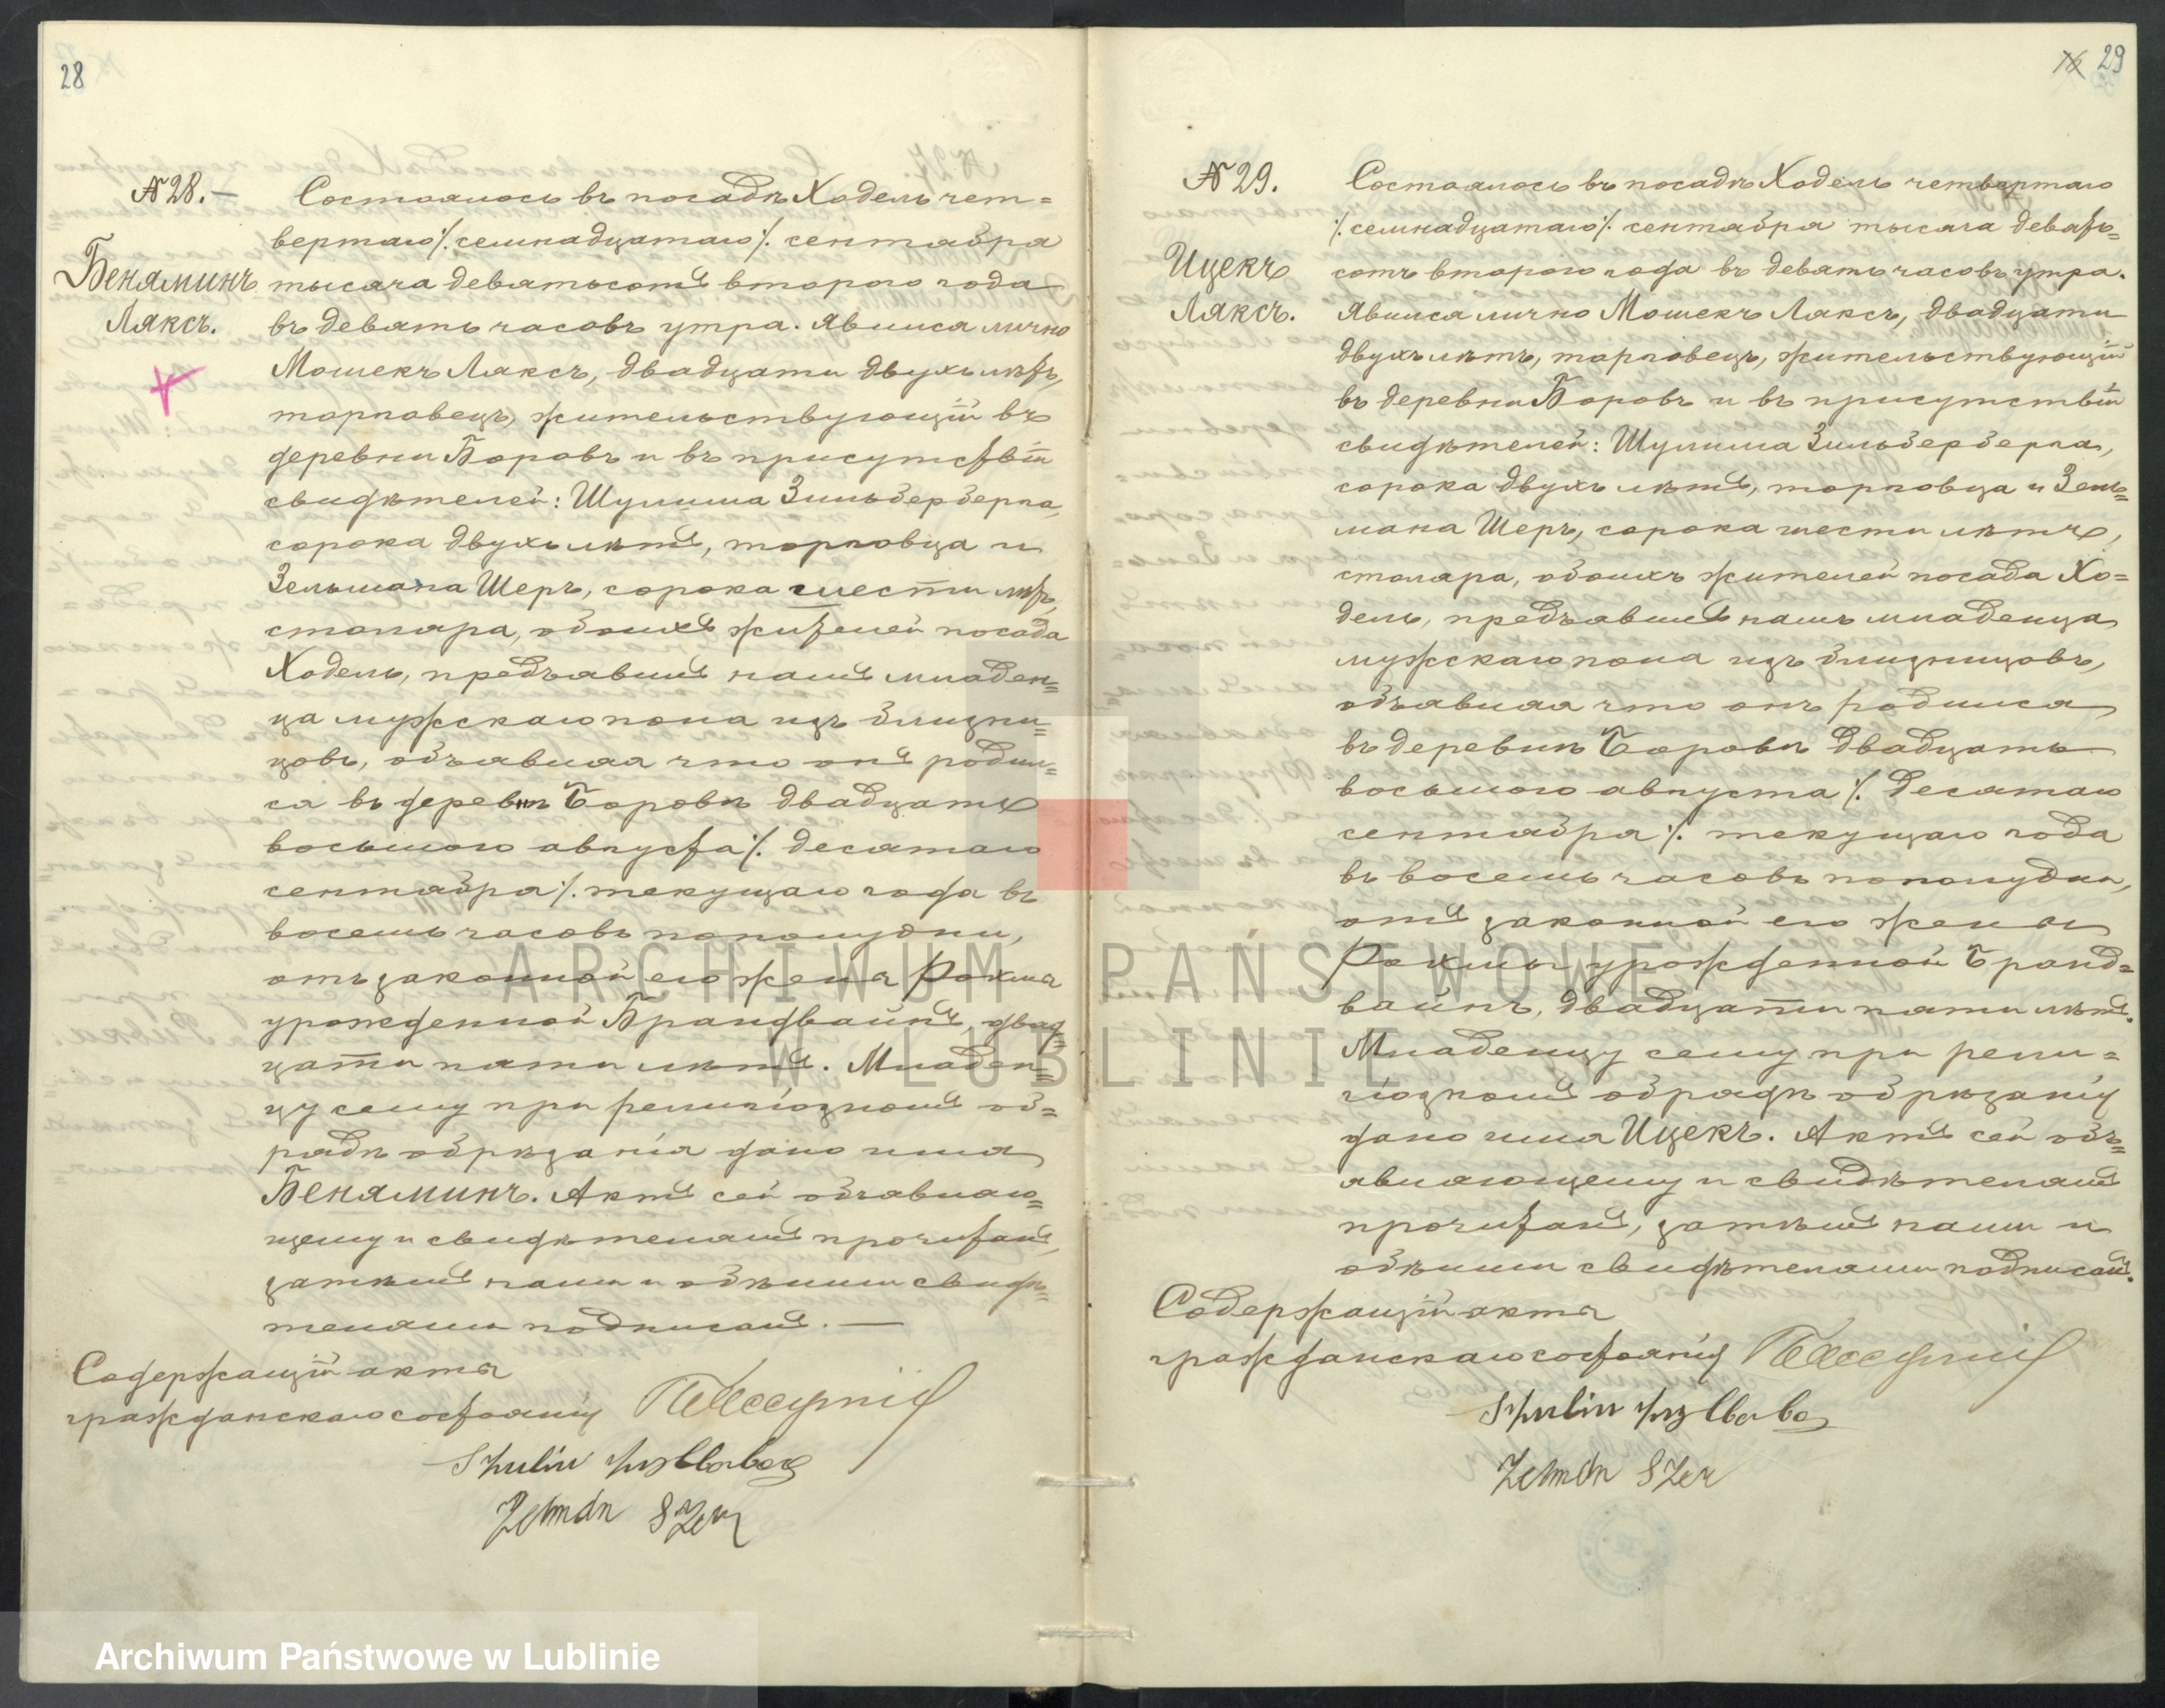 28
№ 28.—
Беняминъ
Ляксъ.
Состоялось въ посадѣ Ходель чет=
вертаго ⁒ семнадцатаго ⁒ сентября
тысяча девятьсотъ второго года
въ девять часовъ утра. Явился лично
Мошекъ Ляксъ, двадцати двухъ лѣтъ,
торговецъ, жительствующій въ
деревни Боровъ и въ присутствіи
свидѣтелей: Шулима Зильберберга,
сорока двухъ лѣтъ, торговца и
Зельмана Шеръ, сорока шести лѣтъ,
столяра, обоихъ жителей посада
Ходель, предъявилъ намъ младен=
ца мужскаго пола изъ близни=
цовъ, объявляя что онъ родил=
ся въ деревнѣ Боровѣ двадцать
восьмого августа ⁒ десятаго
сентября ⁒ текущаго года въ
восемь часовъ пополудни,
отъ законной его жены Рохмы
урожденной Брандвайнъ, двад=
цати пяти лѣтъ. Младен=
цу сему при религіозномъ об=
рядѣ обрѣзанія дано имя
Беняминъ. Актъ сей объявляю=
щему и свидѣтелямъ прочитанъ,
затѣмъ нами и обѣими свидѣ=
телями подписанъ.—
Содержащій акты
гражданскаго состоянія
Zelman Szer
29
№ 29.
Ицекъ
Ляксъ.
Состоялось въ посадѣ Ходель четвертаго
⁒ семнадцатаго ⁒ сентября тысяча девять=
сотъ второго года въ девять часовъ утра.
Явился лично Мошекъ Ляксъ, двадцати
двухъ лѣтъ, торговецъ, жительствующій
въ деревни Боровъ и въ присутствіи
свидѣтелей: Шулима Зильберберга,
сорока двухъ лѣтъ, торговца и Зель=
мана Шеръ, сорока шести лѣтъ,
столяра, обоихъ жителей посада Хо=
дель, предъявилъ намъ младенца
мужскаго пола изъ близницовъ,
объявляя что онъ родился
въ деревнѣ Боровѣ двадцать
восьмого августа ⁒ десятаго
сентября ⁒ текущаго года
въ восемь часовъ пополудни,
отъ законной его жены
Рохмы урожденной Бранд=
вайнъ, двадцати пяти лѣтъ.
Младенцу сему при рели=
гіозномъ обрядѣ обрѣзанія
дано имя Ицекъ. Актъ сей объ=
являющему и свидѣтелямъ
прочитанъ, затѣмъ нами и
обѣими свидѣтелями подписанъ.
Содержащій акты
гражданскаго состоянія
Zelman Szer
ARCHIWUM PAŃSTWOWE
W LUBLINIE
Archiwum Państwowe w Lublinie